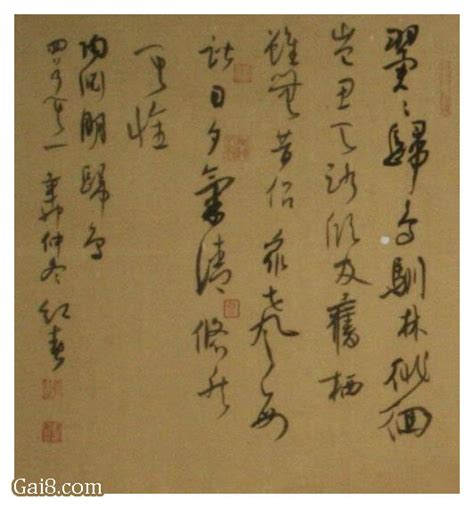 翼〻歸鳥馴林徘徊
豈思天路欣及舊栖
雖無昔侶眾声每
諧日夕氣清悠然
其懷
陶淵明歸鳥
四首其一辛卯仲冬红春
Gai8.com